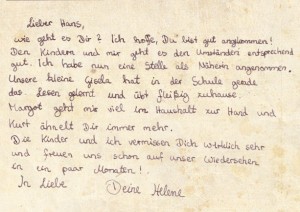 Lieber Hans,
wie geht es Dir? Ich hoffe, Du bist gut angkommen!
Den Kindern und mir geht es den Umständen entsprechend
gut. Ich habe nun eine Stelle als Näherin angenommen.
Unsere kleine Gisela hat in der Schule gerade
das Lesen gelernt und übt fleißig zuhause
Margot geht mir viel im Haushalt zur Hand und
Kurt ähnelt Dir immer mehr.
Die Kinder und ich vermissen Dich wirklich sehr
und freuen uns schon auf unser Wiedersehen
in ein paar Monaten!
In Liebe Deine Helene